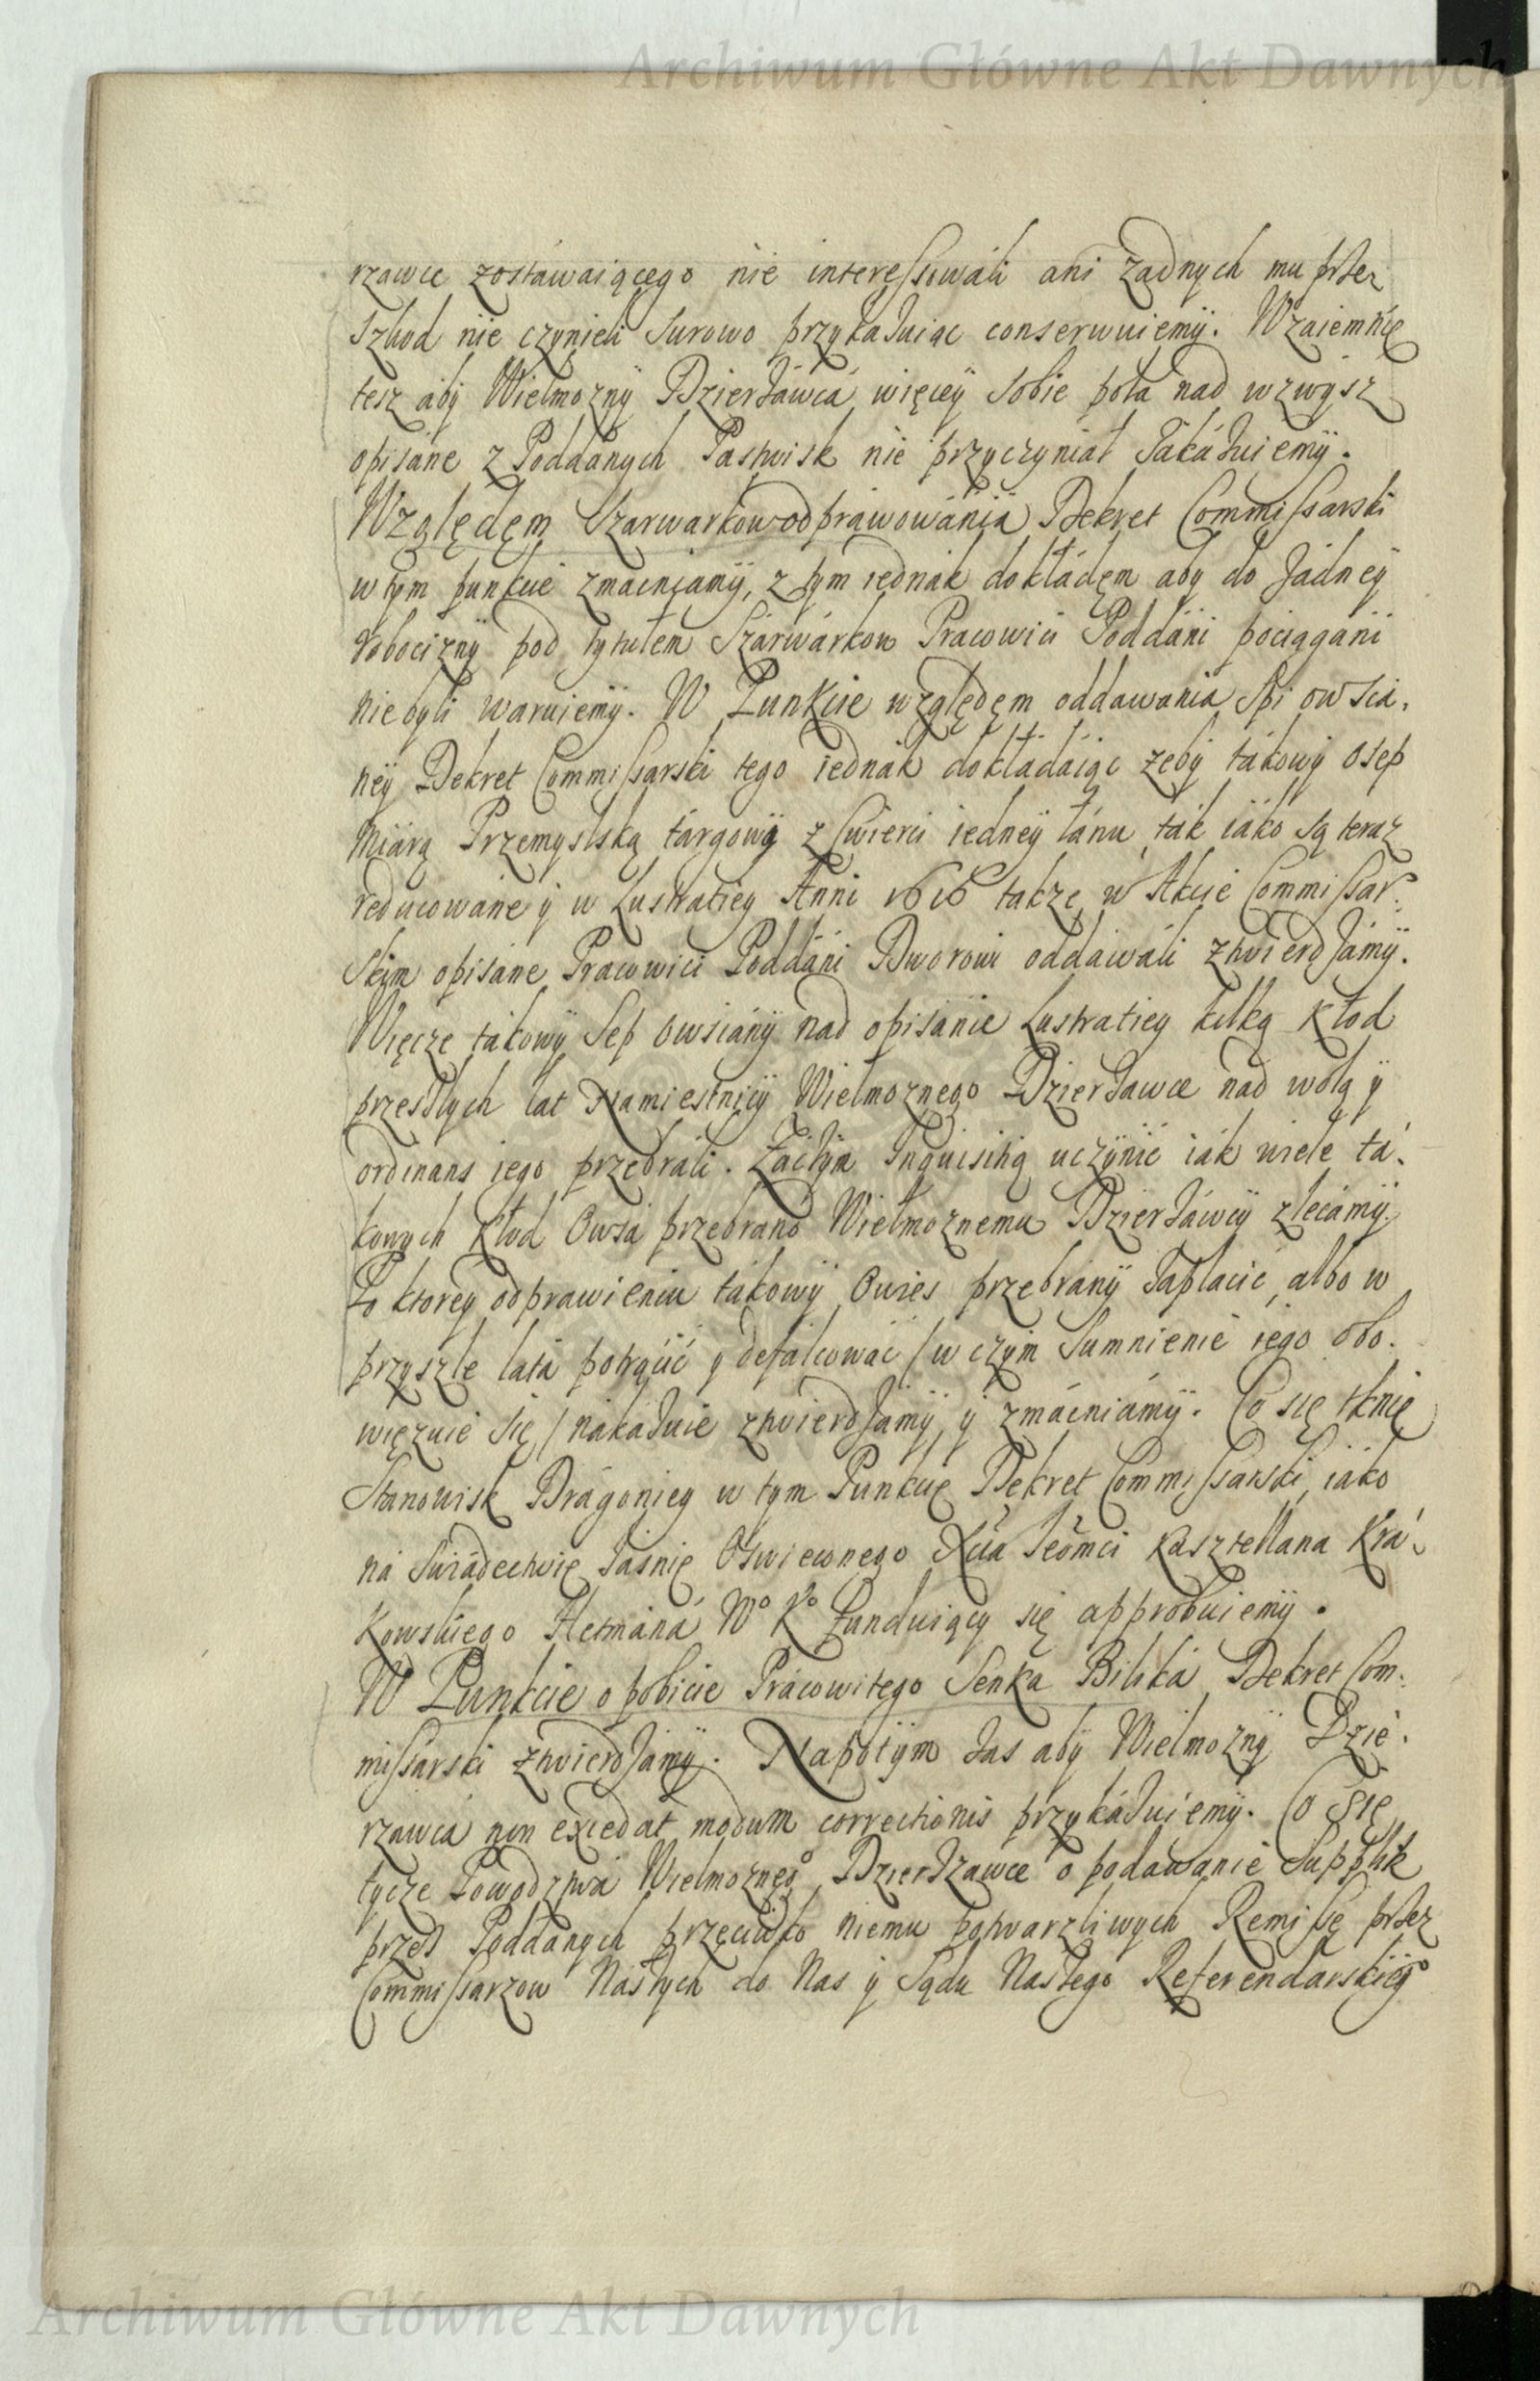 Archiwum Główne Akt Dawnych
rzawce zostáwaiącego nie interessowáli ani żadnych mu przez
szkod nie czynieli surowo przykazuiąc conserwuiemÿ. Wzaiemnie
tesz abÿ WielmoznÿDzierżáwcá więceÿ sobie pola nad wzwysz
opisáne z Poddánych Pastwisk nie przyczyniał Zakázuiemÿ.
Względęm Szarwarkow odpráwowániá Dekret Commissarski
w tym punkcie zmacniamÿ, z tym iednák dokłádęm aby do żádneÿ
robociznÿ pod tytułem Szárwárkow Pracowici Poddáni pociągáni
niebyli waruiemÿ. W Punkcie względęm oddawánia Spi owsia,
neÿ Dekret Commissarski tego iednák dokłádáiąc żebÿ tákowÿ osep
Miárą Przemyslską tárgową z cwierci iedneÿ łánu, ták iáko są teraz
reducowáne ÿ w Lustratieÿ Anni 1616 także w Akcie Commissar:
skim opisáne Pracowici Poddáni Dworowi oddawáli ztwierdzámÿ.
Więcze tákowÿ Sep owsiánÿ nad opisánie Lustratieÿ kilką Kłod
przeszłych lat Namiestnicÿ Wielmoznego Dzierżawce nad wolą ÿ
ordinans iego przebráli. Zaczÿm Inquisitią uczÿnić iák wiele tá,
kowych Kłod Owsá przebráno Wielmoznemu Dzierżáwcÿ zlecámÿ.
Po ktorey odprawieniu tákowÿ Owies przebránÿ zapłácić, albo w
przyszłe látá potrącić ÿ defalcowáć / w czÿm Sumnienie iego obo.
więzuie się / nákázuie ztwierdzámÿ ÿ zmácniámÿ. Co się tknie
Stanowisk Drágonieÿ w tym Punkcie Dekret Commissarski, iáko
ná Swiádectwie Jásnie Oswieconego Xcia Jeomci Kasztellana Krá,
kowskiego Hetmáná Wo Ko funduiący się approbuiemÿ.
W Punkcie o pobicie Prácowitego Senka Biliká Dekret Com:
missarski ztwierdzamÿ. Napotÿm zas abÿ Wielmoznÿ Dzie.
rzawcá non excedat modum correctionis przykázuiemÿ. Co się
tycze Powodztwá Wielmoznego Dzierżzawce o podáwánie Supplik
przez Poddanych przeciwko niemu potwarzliwych Remissę przez
Commissarzow Nászych do Nas ÿ Sądu Nászego Referendarskiego
Archiwum Główne Akt Dawnych